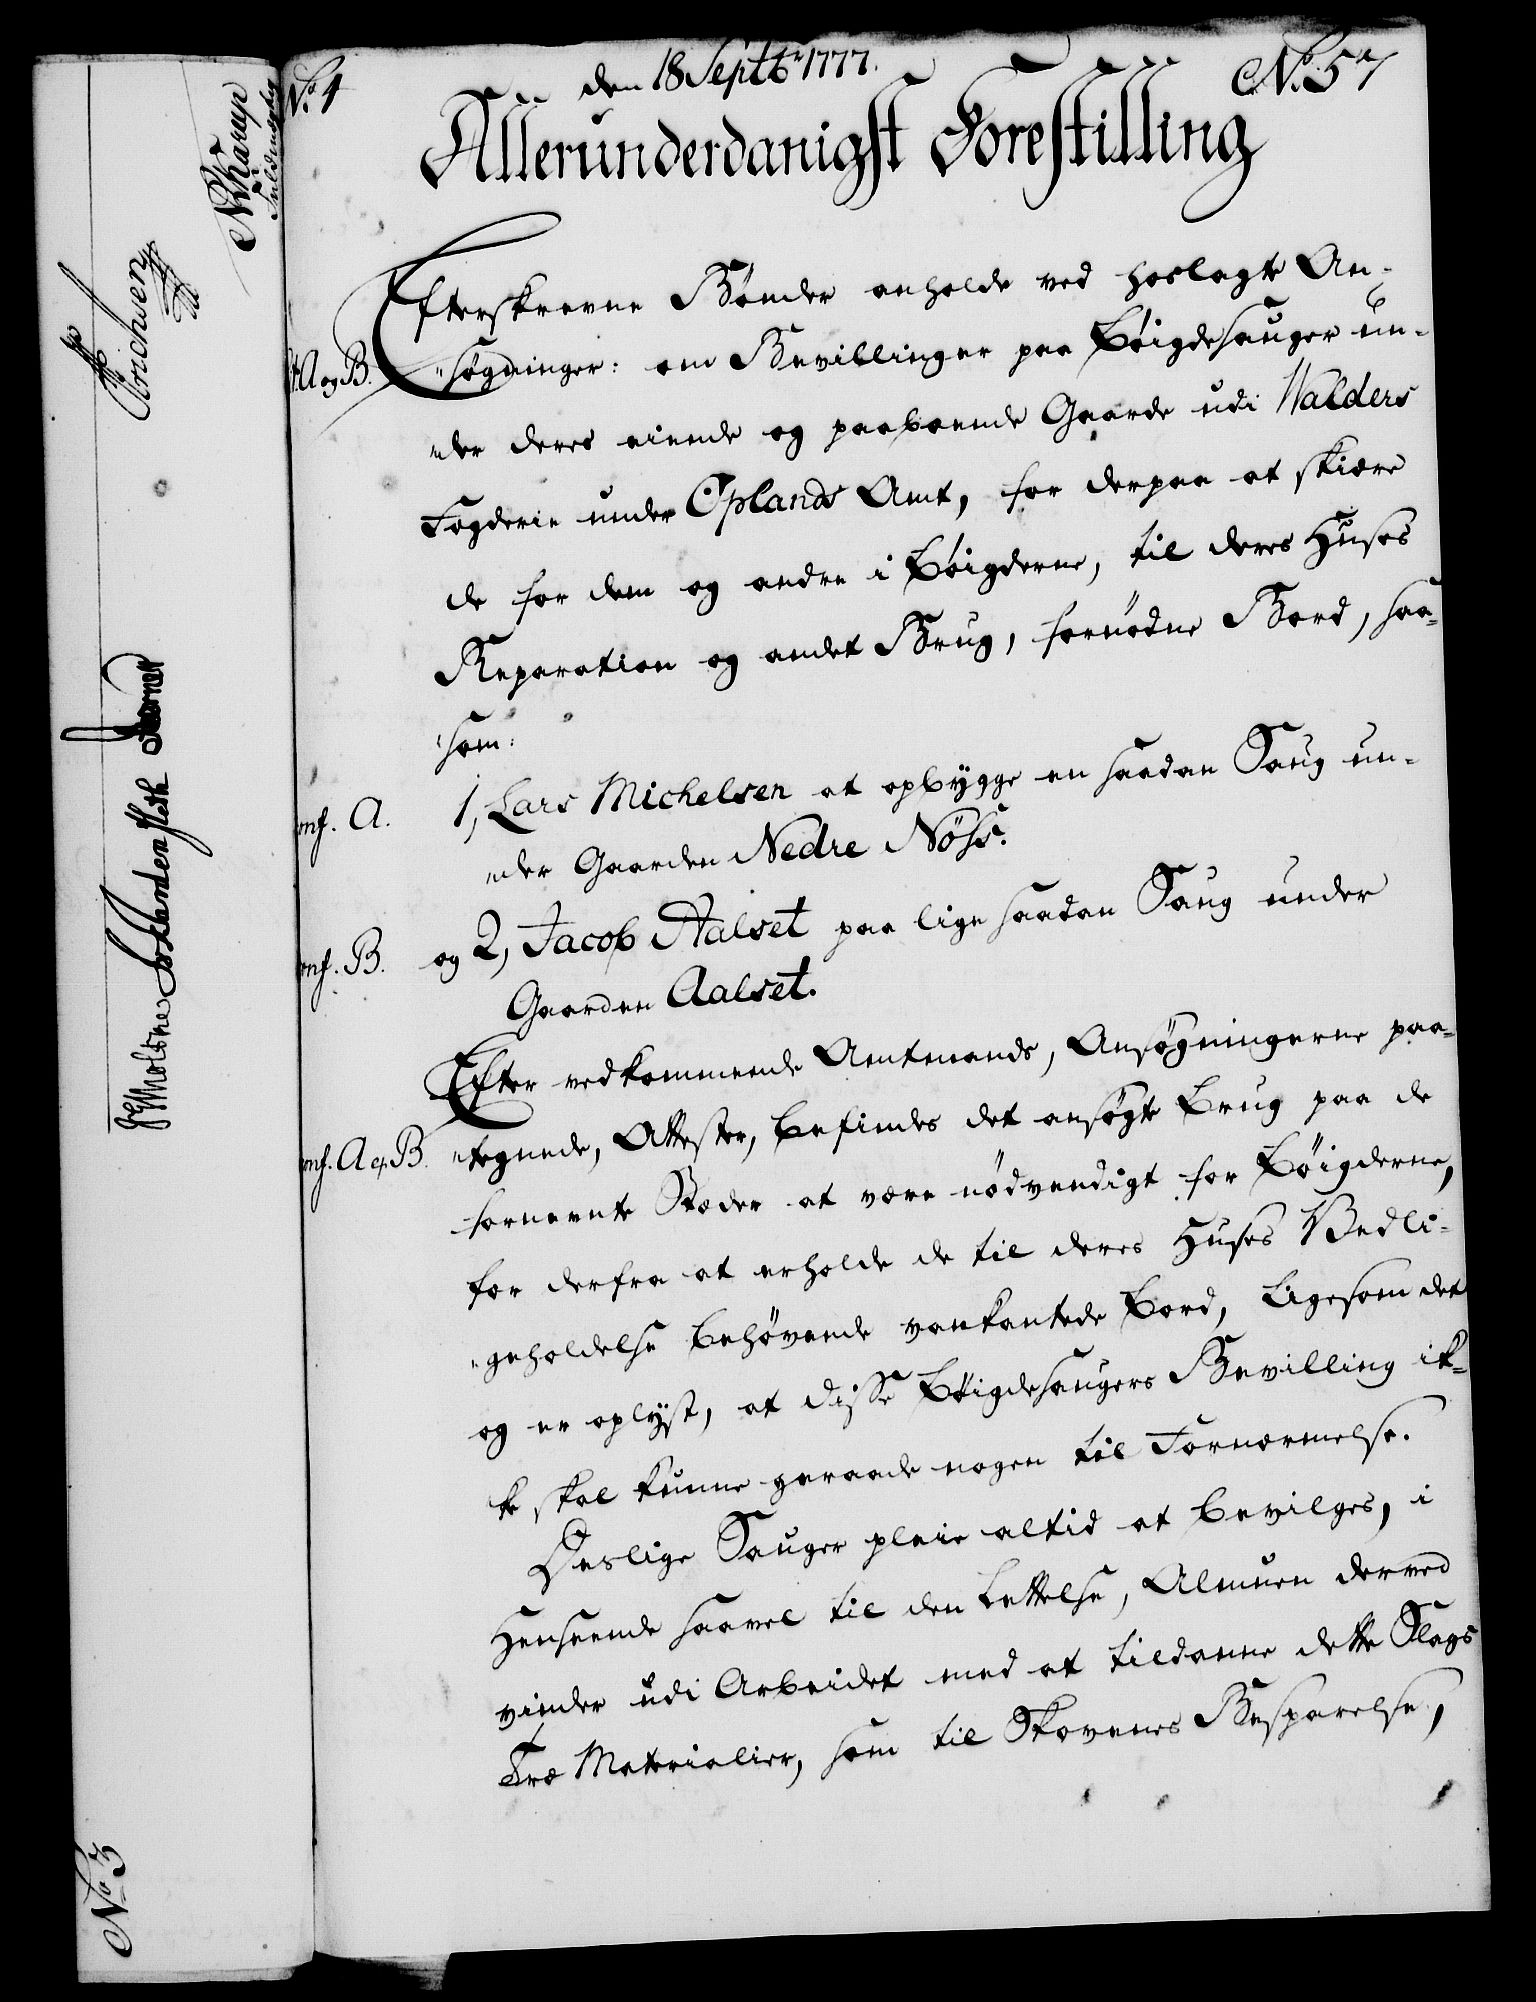 No. 4
den 18 Septbr 1777.
No. 57
Allerunderdanigst Forestilling
Efterskrevne Bønder anholde ved hoslagte An-
A og B.
søgninger: om Bevillinger paa Bøigdesauger un-
der deres eiende og paaboende Gaarde udi Walders
Fogderie under Oplands Amt, for derpaa at skiære
de for dem og andre i Bøigderne, til deres Huses
Reparation og andet Brug, fornødne Bord, saa-
som:
conf. A.
1, Lars Michelsen at opbygge en saadan Saug un-
der Gaarden Nedre Nøss.
conf. B.
og 2, Jacob Aalset paa lige saadan Saug under
Gaarden Aalset.
Efter vedkommende Amtmands, Ansøgningerne paa-
conf. A og B.
tegnede, Attester, befindes det ansøgte Brug paa de
fornevnte Stæder at være nødvendigt for Bøigderne,
for derfra at erholde de til deres Huses Vedli-
geholdelse behøvende vankantede Bord, ligesom det
og er oplyst, at disse Bøigdesaugers Bevilling ik-
ke skal kunne geraade nogen til Fornærmelse.
Deslige Sauger pleie altid at bevilges, i
Henseende saavel til den Lettelse, Almuen derved
vinder udi Arbeidet med at tildanne dette Slags
Træ Materialier, som til Skovenes Besparelse,
No 3